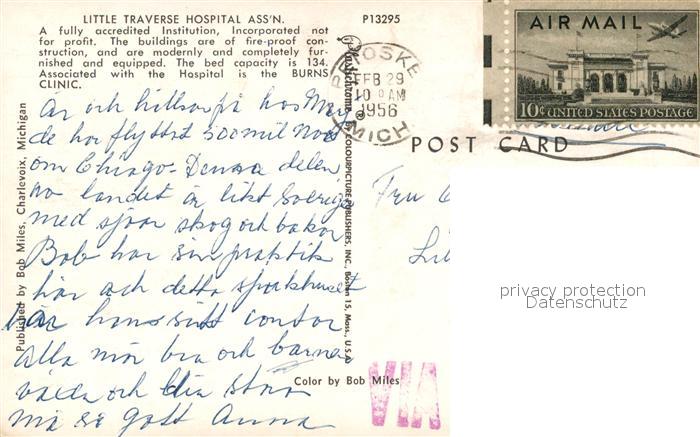 LITTLE TRAVERSE HOSPITAL ASS'N.
A fully accredited Institution, Incorporated not
for profit. The buildings are of fire-proof con-
struction, and are modernly and completely fur-
nished and equipped. The bed capacity is 134.
Associated with the Hospital is the BURNS
CLINIC.
P13295
PETOSKEY
FEB 29
10 AM
1956
MICH
AIR MAIL
10¢ UNITED STATES POSTAGE
POST CARD
Är och hälsar på hos May
de har flyttat 500 mil
om Chicago. Denna delen
av landet är likt Sverige
med sjöar skog och backar
Bob har sin praktik
här och detta sjukhuset
här hans contor
alla mår bra och barnen
växa och bli stora
må så gott Anna
Fru
Published by Bob Miles, Charlevoix, Michigan
Plastichrome ® BY COLOURPICTURE PUBLISHERS, INC., Boston 15, Mass., U.S.A.
Color by Bob Miles
VIA
privacy protection
Datenschutz